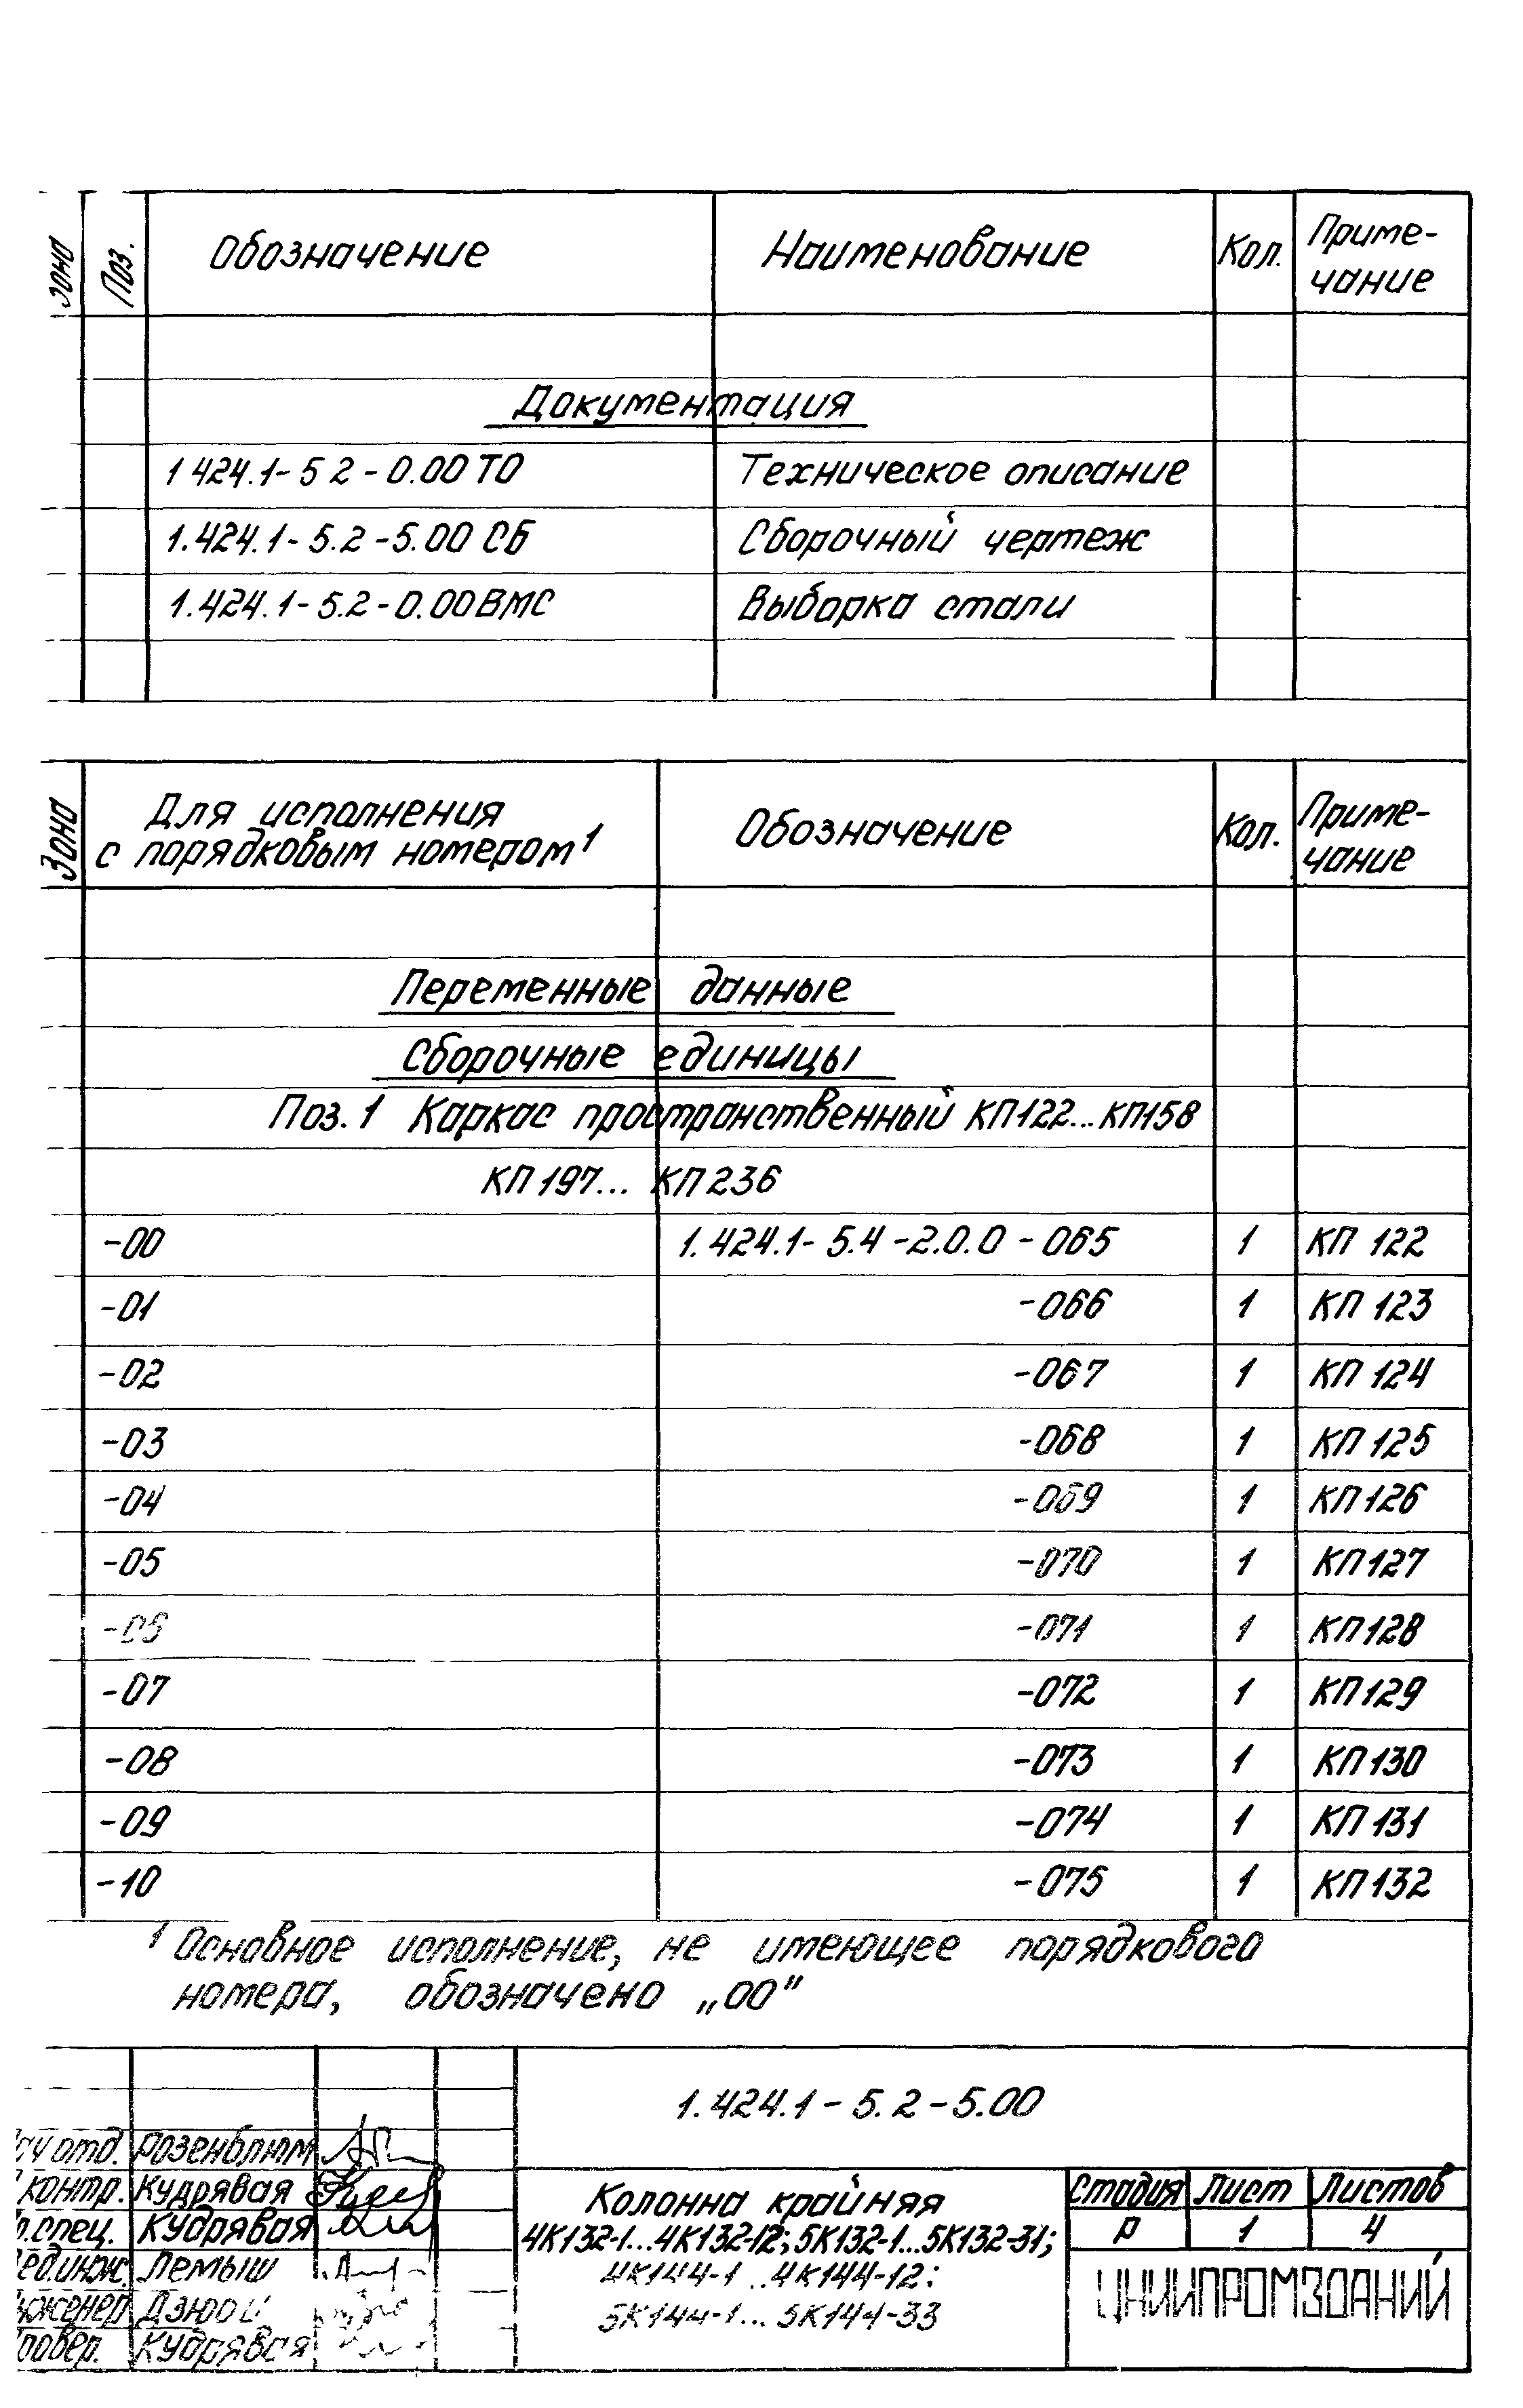 Зона Поз. Обозначение Наименование Кол. Приме-
чание
Документация
1 424.1-5 2-0.00 ТО Техническое описание
1.424.1-5.2-5.00 СБ Сборочный чертеж
1.424.1-5.2-0.00 ВМС Выборка стали
Зона Для исполнения
с порядковым номером¹ Обозначение Кол. Приме-
чание
Переменные данные
Сборочные единицы
Поз. 1 Каркас пространственный КП122...КП158
КП197... КП236
-00 1.424.1-5.4-2.0.0-065 1 КП 122
-01 -066 1 КП 123
-02 -067 1 КП 124
-03 -068 1 КП 125
-04 -069 1 КП 126
-05 -070 1 КП 127
-06 -071 1 КП 128
-07 -072 1 КП 129
-08 -073 1 КП 130
-09 -074 1 КП 131
-10 -075 1 КП 132
¹ Основное исполнение, не имеющее порядкового
номера, обозначено „00"
1.424.1-5.2-5.00
отд. Розенблюм
контр. Кудрявая
спец. Кудрявая
Лемыш
Кудрявая
Колонна крайняя
4К132-1...4К132-12; 5К132-1...5К132-31;
4К144-1...4К144-12;
5К144-1... 5К144-33
Стадия Лист Листов
Р 1 4
ЦНИИПРОМЗДАНИЙ